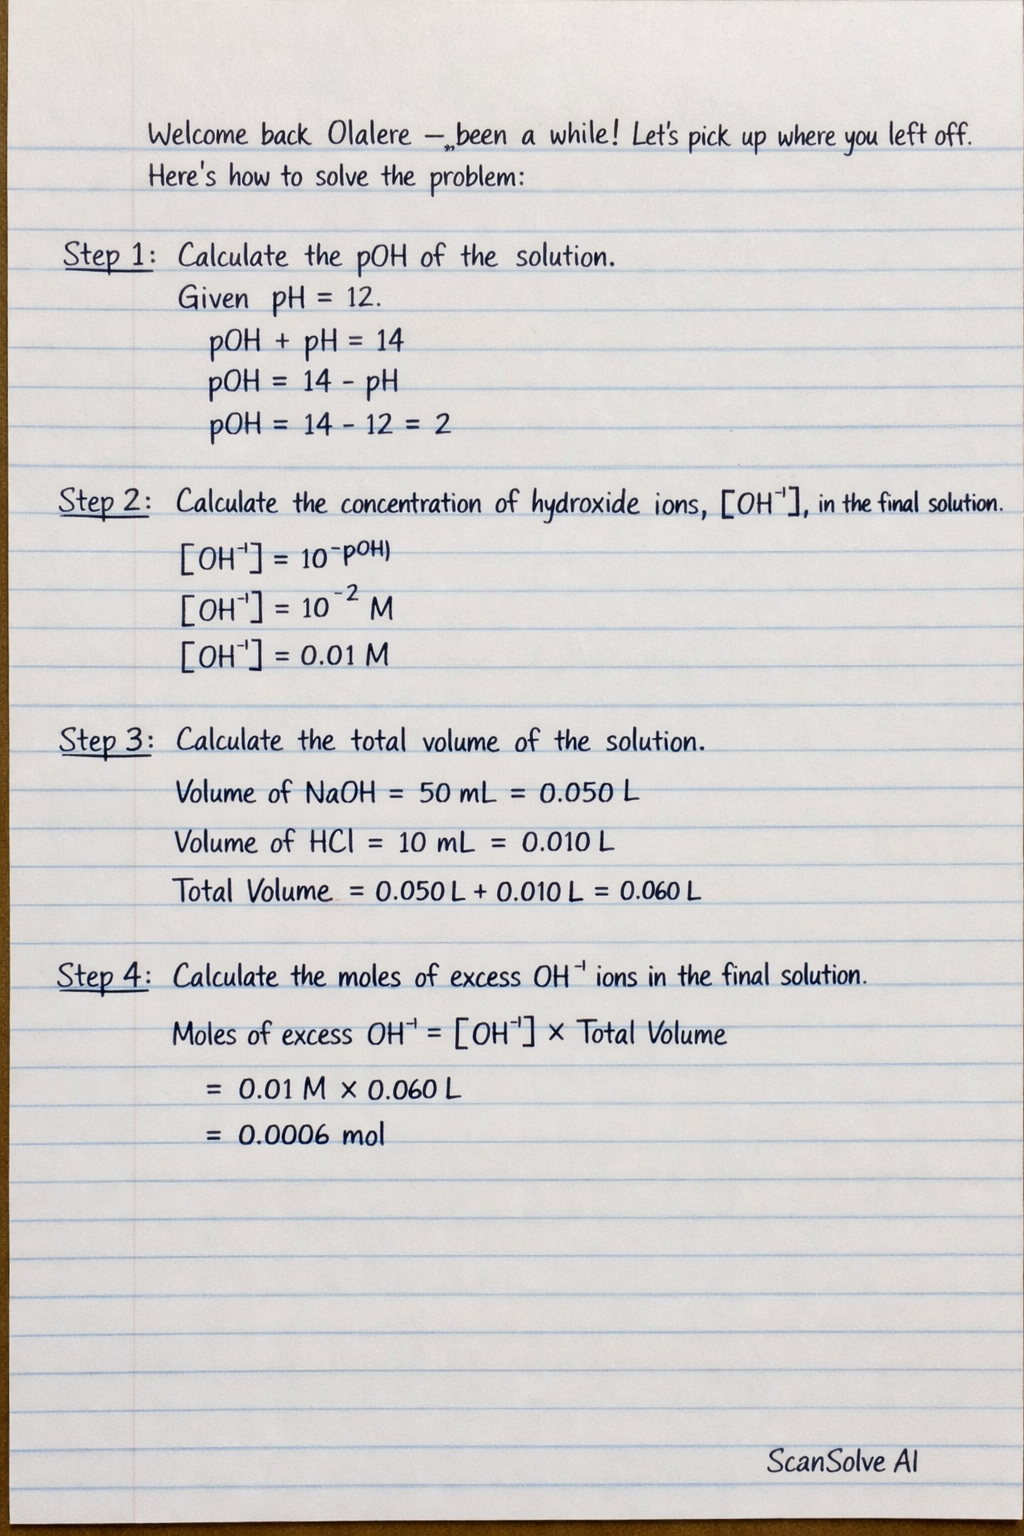 Welcome back Olalere – „been a while! Let's pick up where you left off.
Here's how to solve the problem:
Step 1: Calculate the pOH of the solution.
Given pH = 12.
pOH + pH = 14
pOH = 14 - pH
pOH = 14 - 12 = 2
Step 2: Calculate the concentration of hydroxide ions, [OH⁻¹], in the final solution.
[OH⁻¹] = 10⁻ᵖᴼᴴ⁾
[OH⁻¹] = 10⁻² M
[OH⁻¹] = 0.01 M
Step 3: Calculate the total volume of the solution.
Volume of NaOH = 50 mL = 0.050 L
Volume of HCl = 10 mL = 0.010 L
Total Volume = 0.050 L + 0.010 L = 0.060 L
Step 4: Calculate the moles of excess OH⁻¹ ions in the final solution.
Moles of excess OH⁻¹ = [OH⁻¹] × Total Volume
= 0.01 M × 0.060 L
= 0.0006 mol
ScanSolve AI